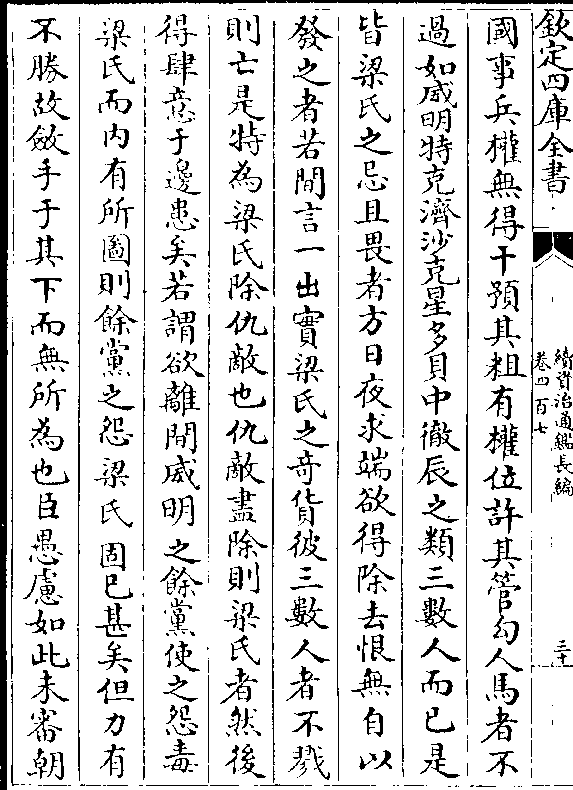 欽定四庫全書
續資治通鑑長編
卷四百七
三十
國事兵權無得干預其粗有權位許其管勾人馬者不
過如威明特克濟沙克星多貝中徹辰之類三數人而已是
皆梁氏之忌且畏者方日夜求端欲得除去恨無自以
發之者若間言一出實梁氏之奇貨彼三數人者不戮
則亡是特為梁氏除仇敵也仇敵盡除則梁氏者然後
得肆意于邊患矣若謂欲離間威明之餘黨使之怨毒
梁氏而内有所圖則餘黨之怨梁氏固已甚矣但力有
不勝故斂手于其下而無所為也臣愚慮如此未審朝